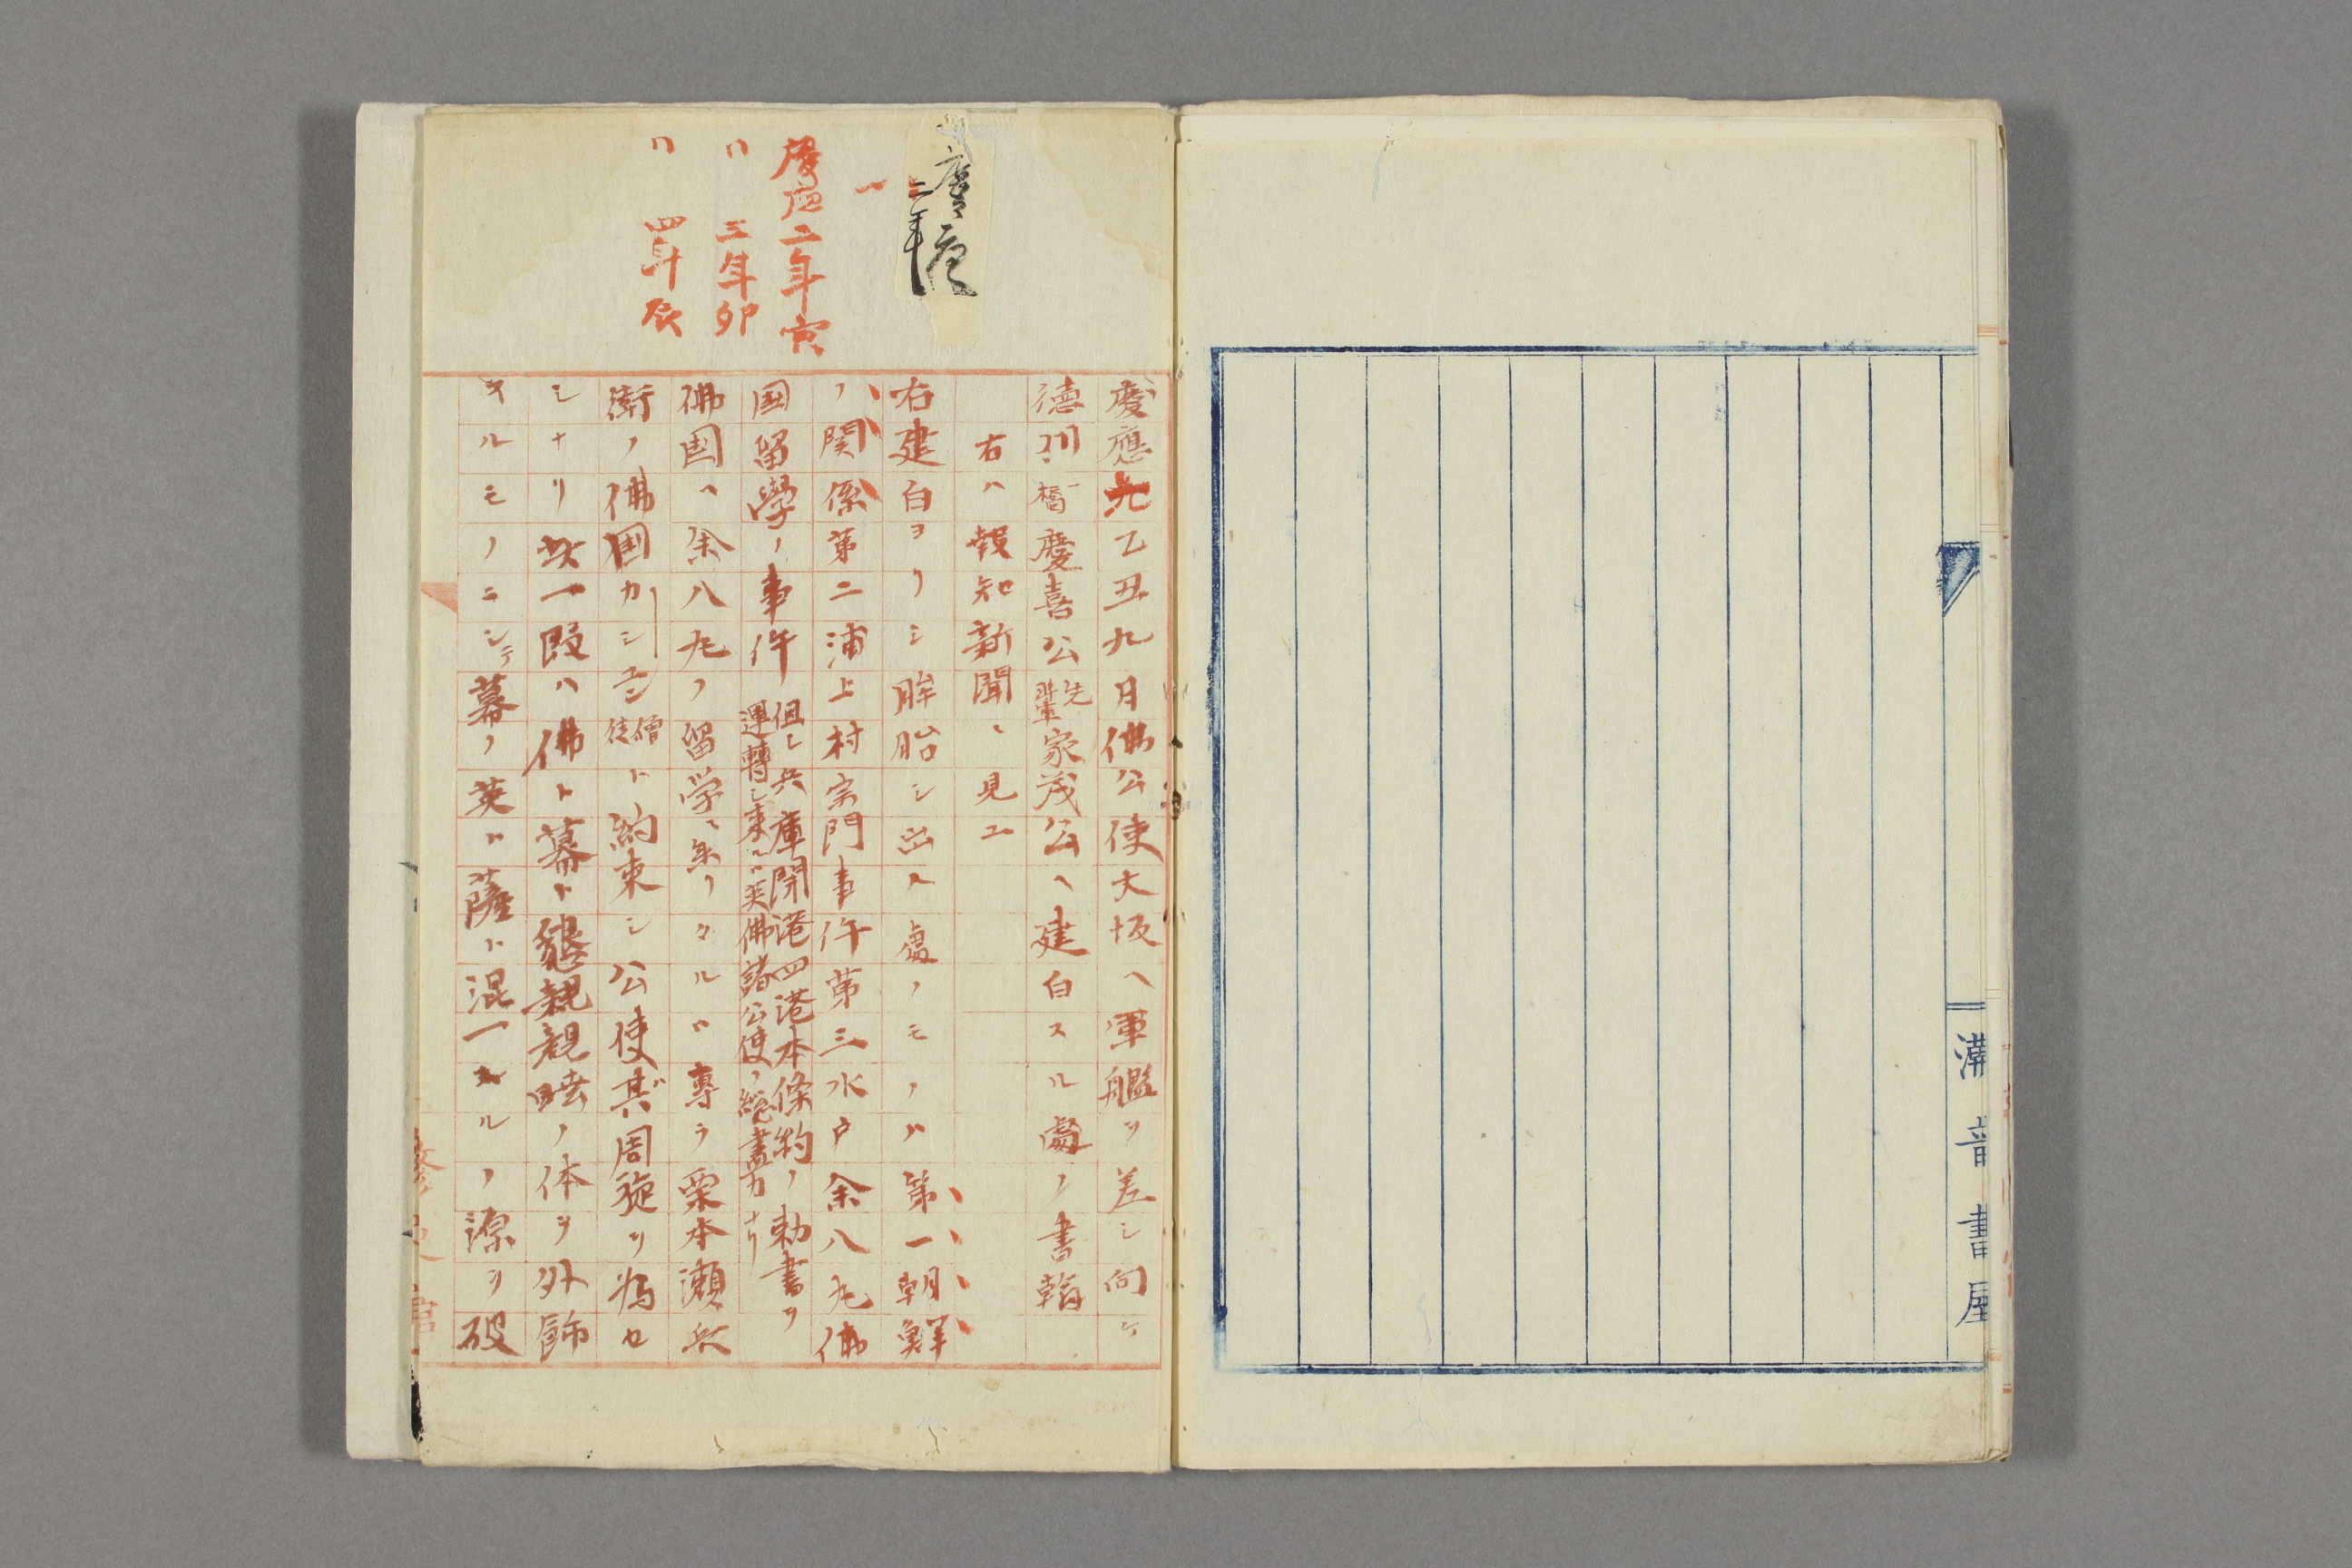 溝音書屋
慶應
二年
一
慶应二年寅
〃 三年卯
〃 四年辰
慶應元乙丑九月佛公使大坂ヘ軍艦ヲ差シ向ケ
徳川一橋慶喜公先輩家茂公ヘ建白スル處ノ書翰
右ハ報知新聞ニ見エ
右建白ヨリシ胚胎シ出ス處ノモノハ第一朝鮮
ノ関係第二浦上村宗門事件第三水戸余八九佛
国留學ノ事件但シ兵庫開港四港本條約ノ勅書ヲ
運轉シ来ニハ英佛諸公使ノ総盡力ナリ
佛国ヘ余八九ノ留学ニ至リタルハ専ラ栗本瀬兵
衛ノ佛国カシユン僧徒ト約束シ公使其周旋ヲ為セ
シナリ此一段ハ佛ト幕ト懇親親睦ノ体ヲ外飾
スルモノニシテ幕ノ英ト薩ト混一スルノ源ヲ破